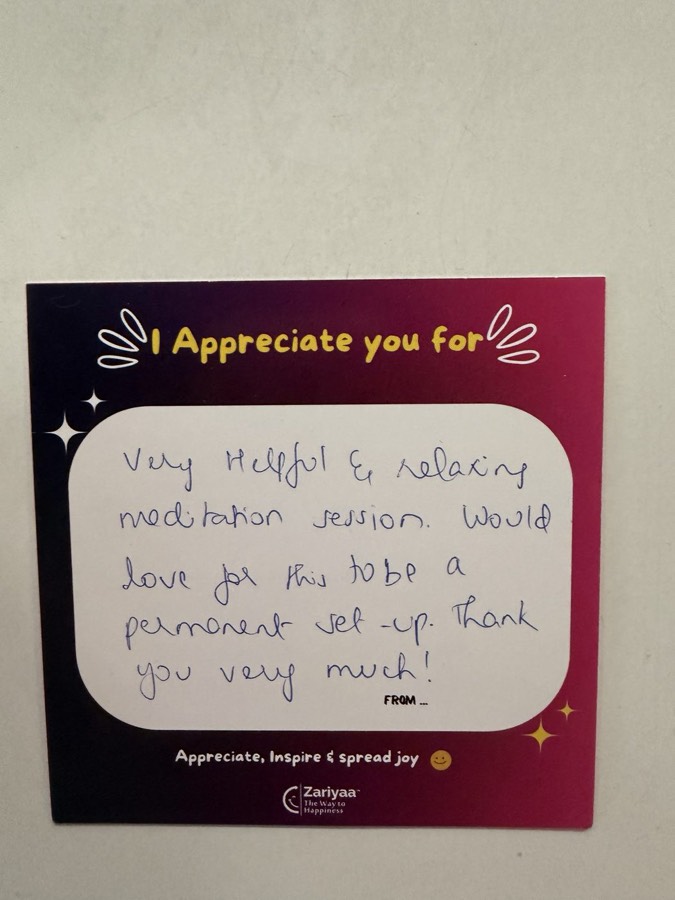 I Appreciate you for
Very Helpful & relaxing
meditation session. Would
love for this to be a
permanent set-up. Thank
you very much!
FROM ...
Appreciate, Inspire & spread joy
Zariyaa™
The Way to
Happiness